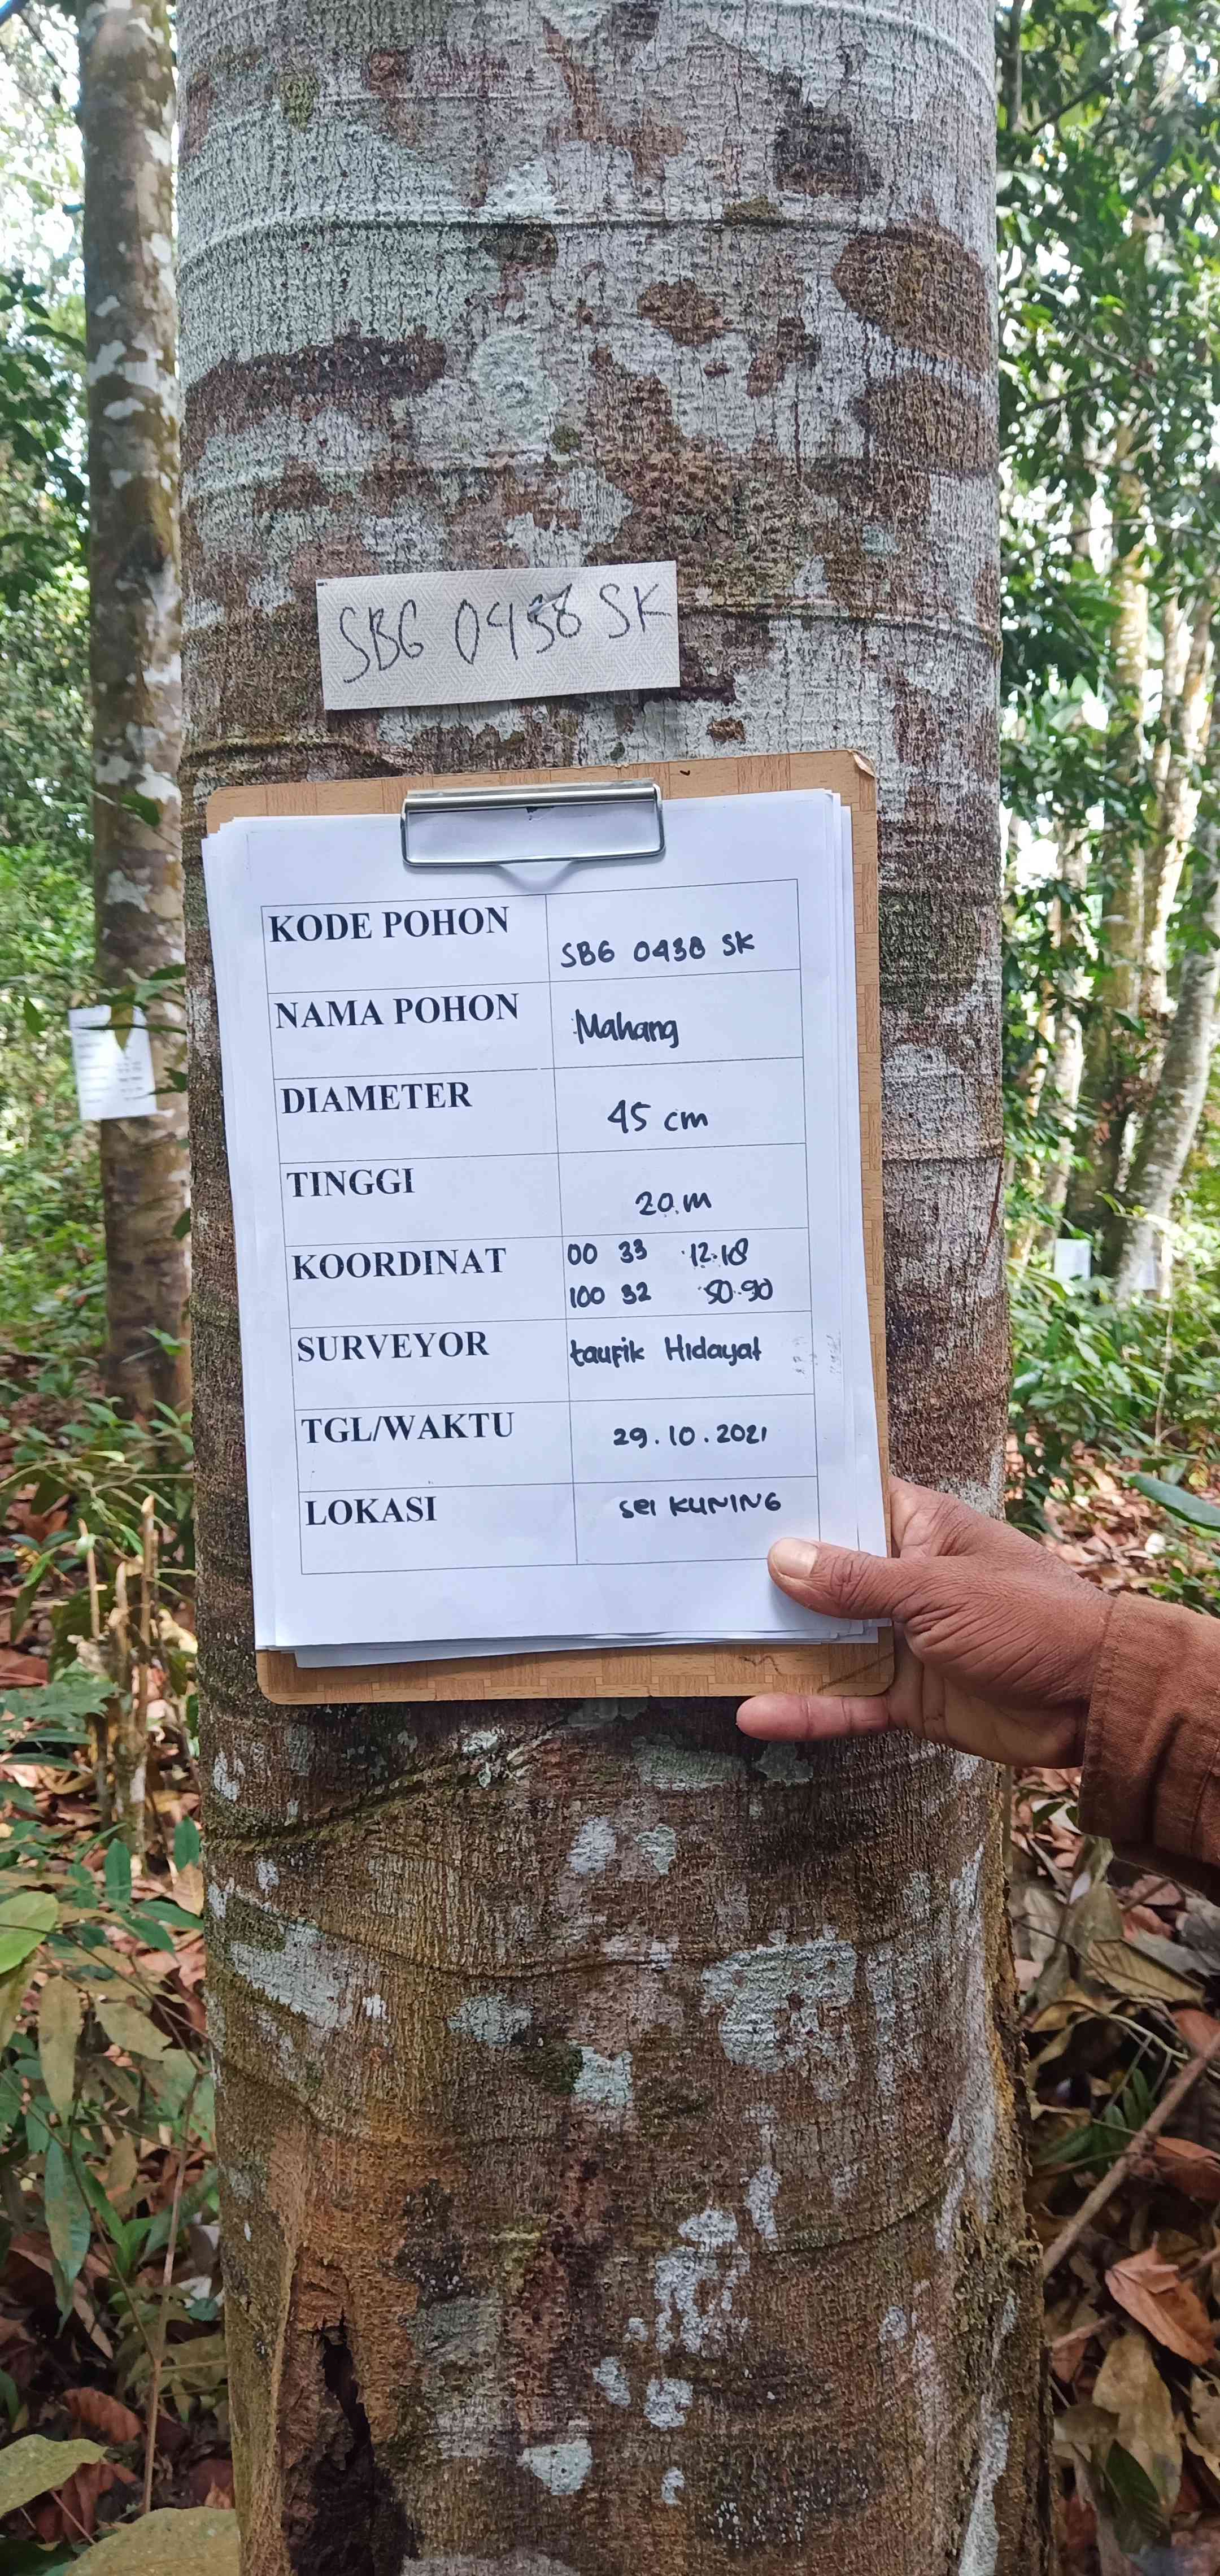 SBG 0438 SK
KODE POHON SBG 0438 SK
NAMA POHON Mahang
DIAMETER 45 cm
TINGGI 20 m
KOORDINAT 00 33 12.18
100 32 50.90
SURVEYOR taufik Hidayat
TGL/WAKTU 29.10.2021
LOKASI sei KUNING